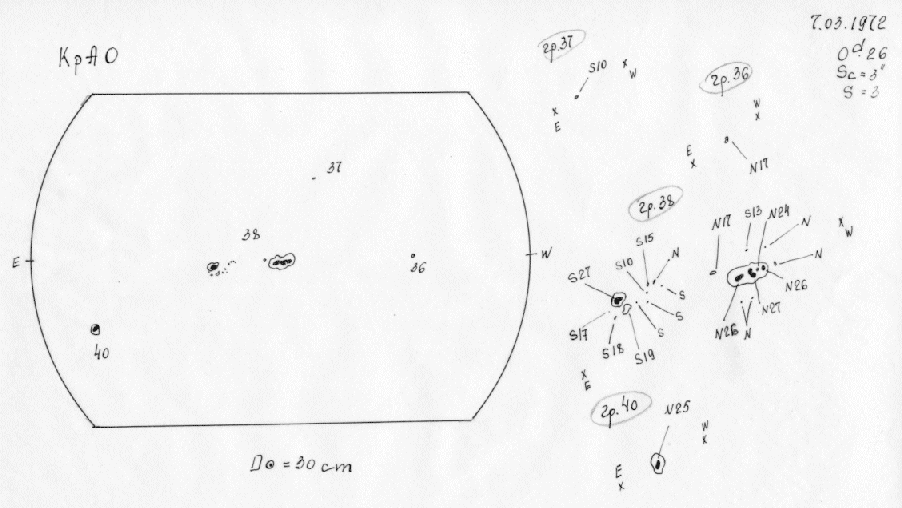 7.03.1972
КрАО
0ᵈ.26
Sc = 3"
S = 3
гр.37
S10
x
W
x
E
гр.36
W
x
E
x
N17
37
38
E
W
36
40
D⊙ = 30 cm
гр.38
S27
S10
S15
N
S
S
S
S17
S18
S19
x
E
N17
S13
N24
N
N
N26
N27
N
N26
x
W
гр.40
N25
W
x
E
x